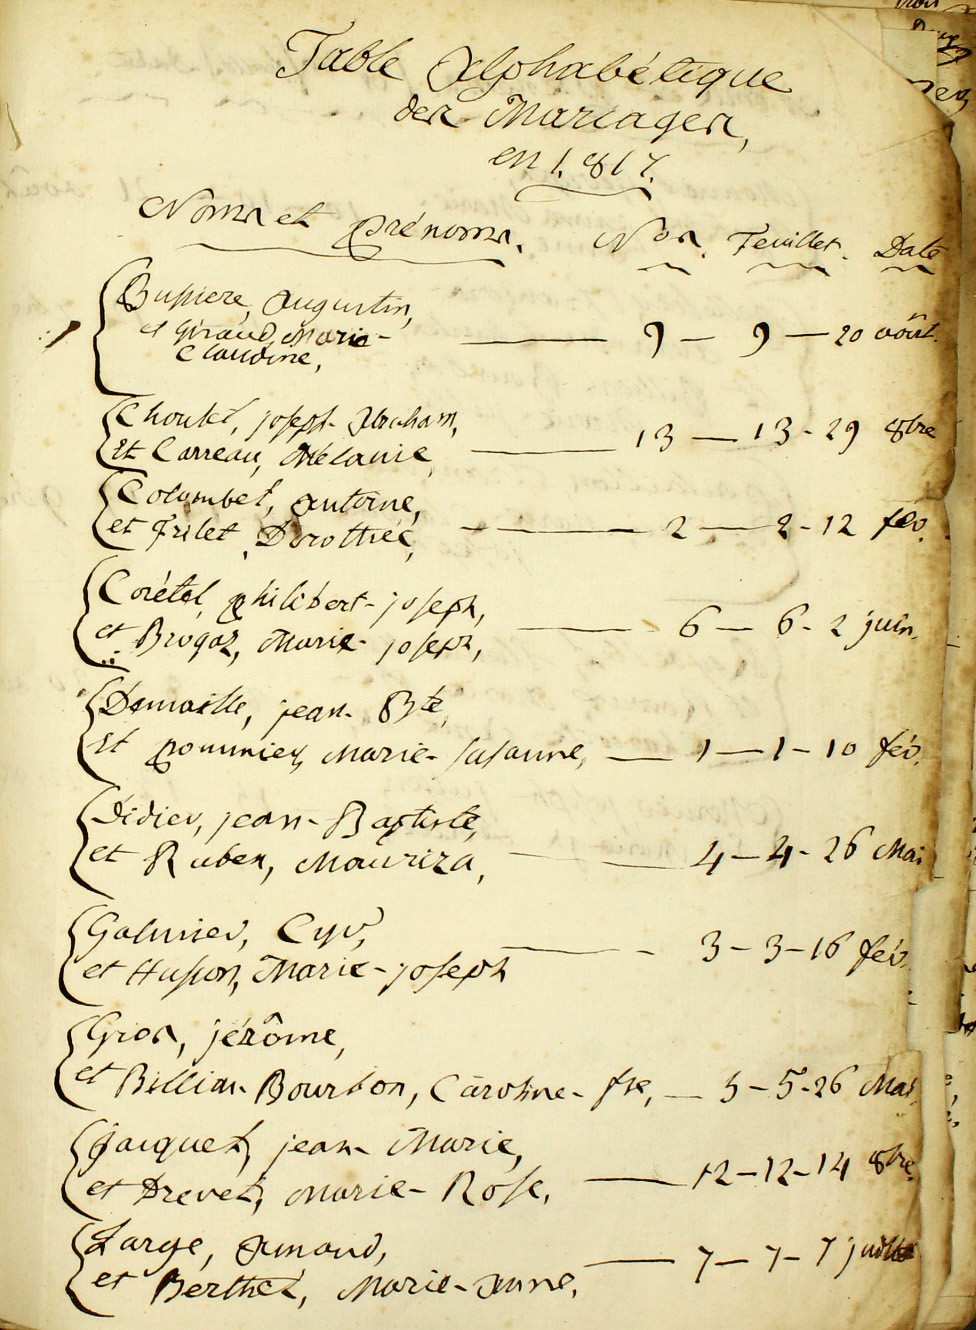 Table Alphabétique
des Mariages,
en 1.817.
Noms et prénoms. Nos. Feuillet. Date
Bussiere, Augustin,
et Giraud, Marie-
Claudine, 9 — 9 — 20 août.
Choulet, joseph-Abraham,
Et Carreau, Mélanie, 13 — 13 - 29 8bre
Colombet, Antoine,
et Frilet, Dorothée, 2 — 2 - 12 fév.
Corétel, philibert-joseph,
et Brogaz, Marie-joseph, 6 — 6 - 2 juin.
Demaille, jean-Bte,
Et pommier, Marie-susanne, 1 — 1 - 10 fév.
Didier, jean-Baptiste,
et Ruben, Mauriza, 4 — 4 - 26 Mai
Galmier, Cyr,
et Husson, Marie-joseph 3 - 3 - 16 fév.
Gros, jérôme,
et Billian-Bourbon, Caroline-fse, 5 - 5 - 26 Mai
jacquet, jean-Marie,
et Drevet, Marie-Rose, 12 - 12 - 14 8bre.
Large, Amand,
et Berthet, Marie-Anne, 7 - 7 - 7 juillet